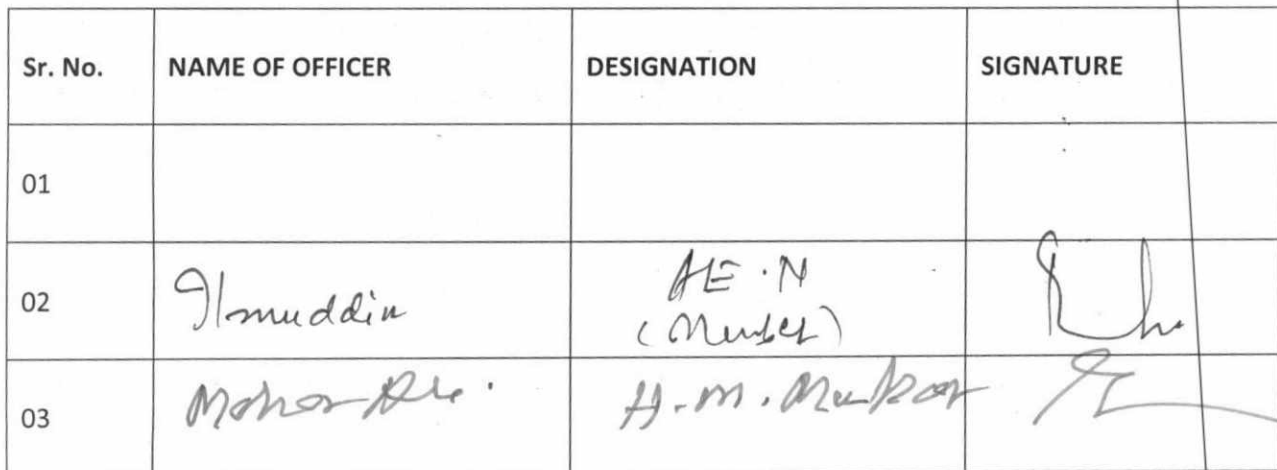 Sr. No. NAME OF OFFICER DESIGNATION SIGNATURE
01
02 Ilmuddin AE.N
(Member)
03 H.M.